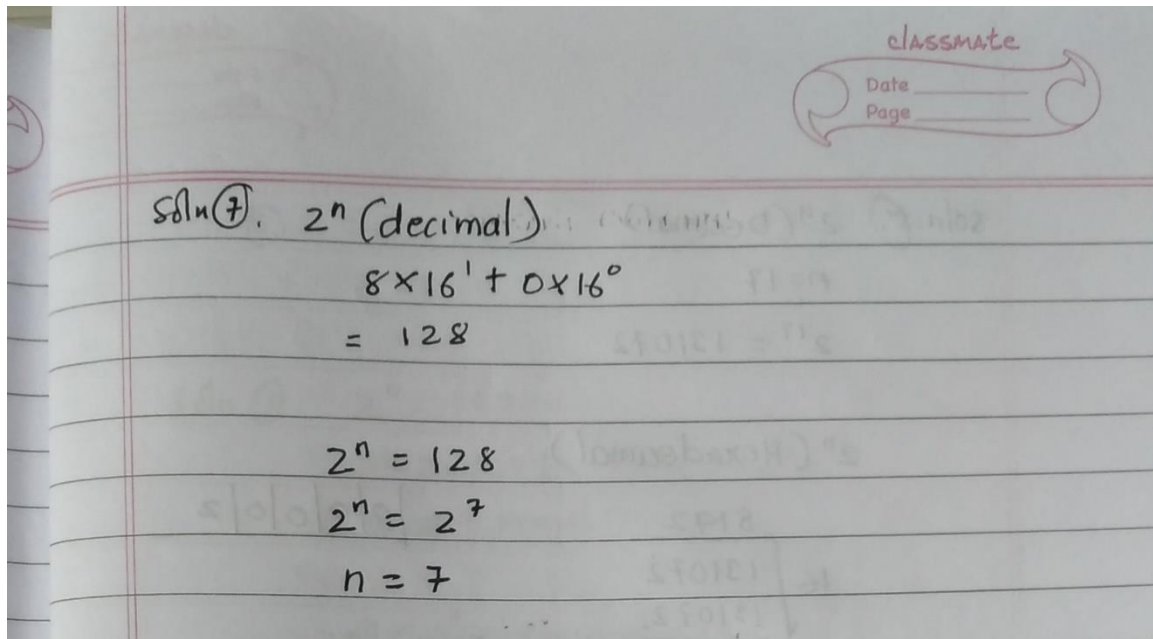 classmate
Date
Page
Soln ⑦. 2ⁿ (decimal)
8×16¹ + 0×16⁰
= 128
2ⁿ = 128
2ⁿ = 2⁷
n = 7